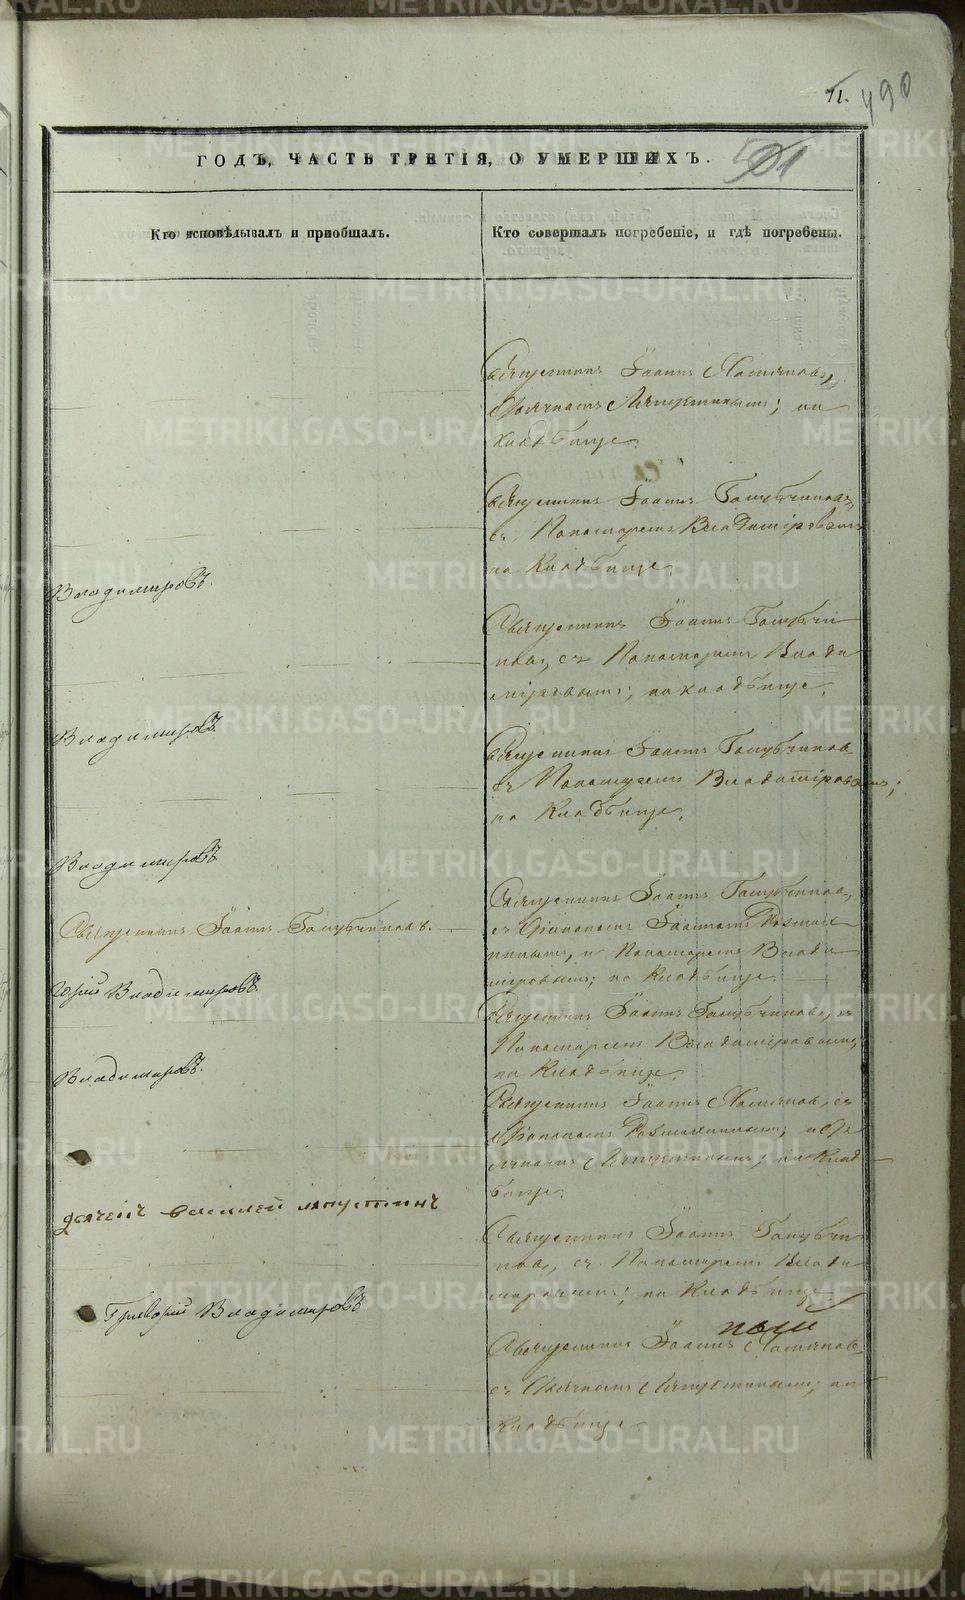 71.
490
501
ГОДЪ, ЧАСТЬ ТРЕТІЯ, О УМЕРШИХЪ.
Кто исповѣдывалъ и пріобщалъ.
Кто совершалъ погребеніе, и гдѣ погребены.
Священникъ Іоаннъ
на
кладбище.
Священникъ Іоаннъ Голубчиковъ,
съ Пономаремъ Владиміровымъ
на Кладбище.
Владимировъ.
Священникъ Іоаннъ Голубчи
ковъ, съ Пономаремъ Влади
міровымъ; на кладбище.
Владимировъ
Священникъ Іоаннъ Голубчиковъ
съ Пономаремъ Владиміровымъ;
на Кладбище.
Владимировъ
Священникъ Іоаннъ Голубчиковъ,
съ Діакономъ Іоанномъ
и Пономаремъ Влади
міровымъ; на Кладбище
Священникъ Іоаннъ Голубчиковъ.
Владимировъ
Священникъ Іоаннъ Голубчиковъ, съ
Пономаремъ Владиміровымъ,
на Кладбище.
Владимировъ.
Священникъ Іоаннъ съ
Діакономъ и Дь
ячкомъ Лапустинымъ; на Клад
бище.
дьячекъ василей лапустинъ
Священникъ Іоаннъ Голубчи
ковъ, съ Пономаремъ Влади
міровымъ; на Кладбище
Григорий Владимировъ
Священникъ Іоаннъ
съ Дьячкомъ Лапустинымъ; на
Кладбище.
METRIKI.GASO-URAL.RU